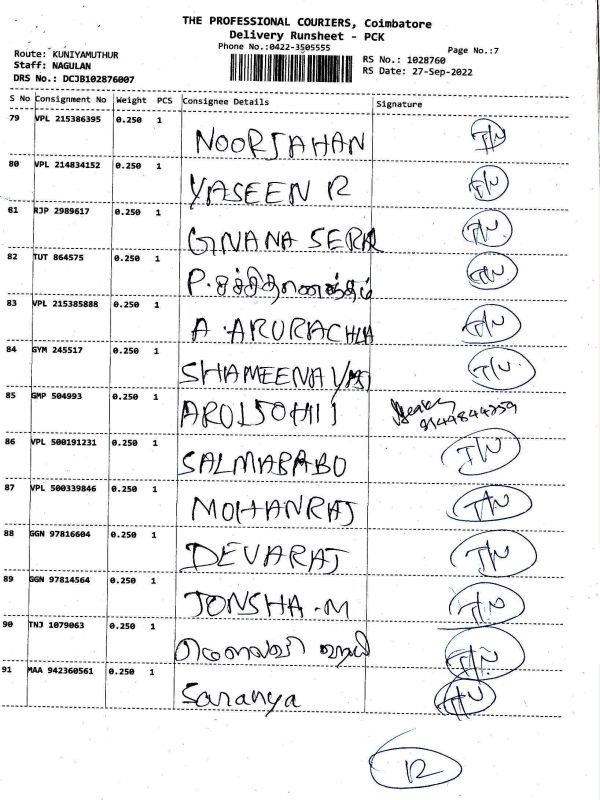 THE PROFESSIONAL COURIERS, Coimbatore
Delivery Runsheet - PCK
Phone No.:0422-3505555
Page No.:7
Route: KUNIYAMUTHUR
Staff: NAGULAN
DRS No.: DCJB102876007
RS No.: 1028760
RS Date: 27-Sep-2022
S No Consignment No Weight PCS Consignee Details Signature
79 VPL 215386395 0.250 1 NOORJAHAN T/N
80 VPL 214834152 0.250 1 YASEEN R T/N
81 RJP 2989617 0.250 1 GNANA SERA T/N
82 TUT 864575 0.250 1 P. சச்சிதானைந்தம் T/N
83 VPL 215385888 0.250 1 A ARURACHLA T/N
84 GYM 245517 0.250 1 SHAMEENA YAS T/N
85 GMP 504993 0.250 1
86 VPL 500191231 0.250 1 SALMABABO T/N
87 VPL 500339846 0.250 1 MOHANRAJ T/N
88 GGN 97816604 0.250 1 DEVARAJ T/N
89 GGN 97814564 0.250 1 JONSHA.M T/N
90 TNJ 1079063 0.250 1 T/N
91 MAA 942360561 0.250 1 Saranya T/N
12